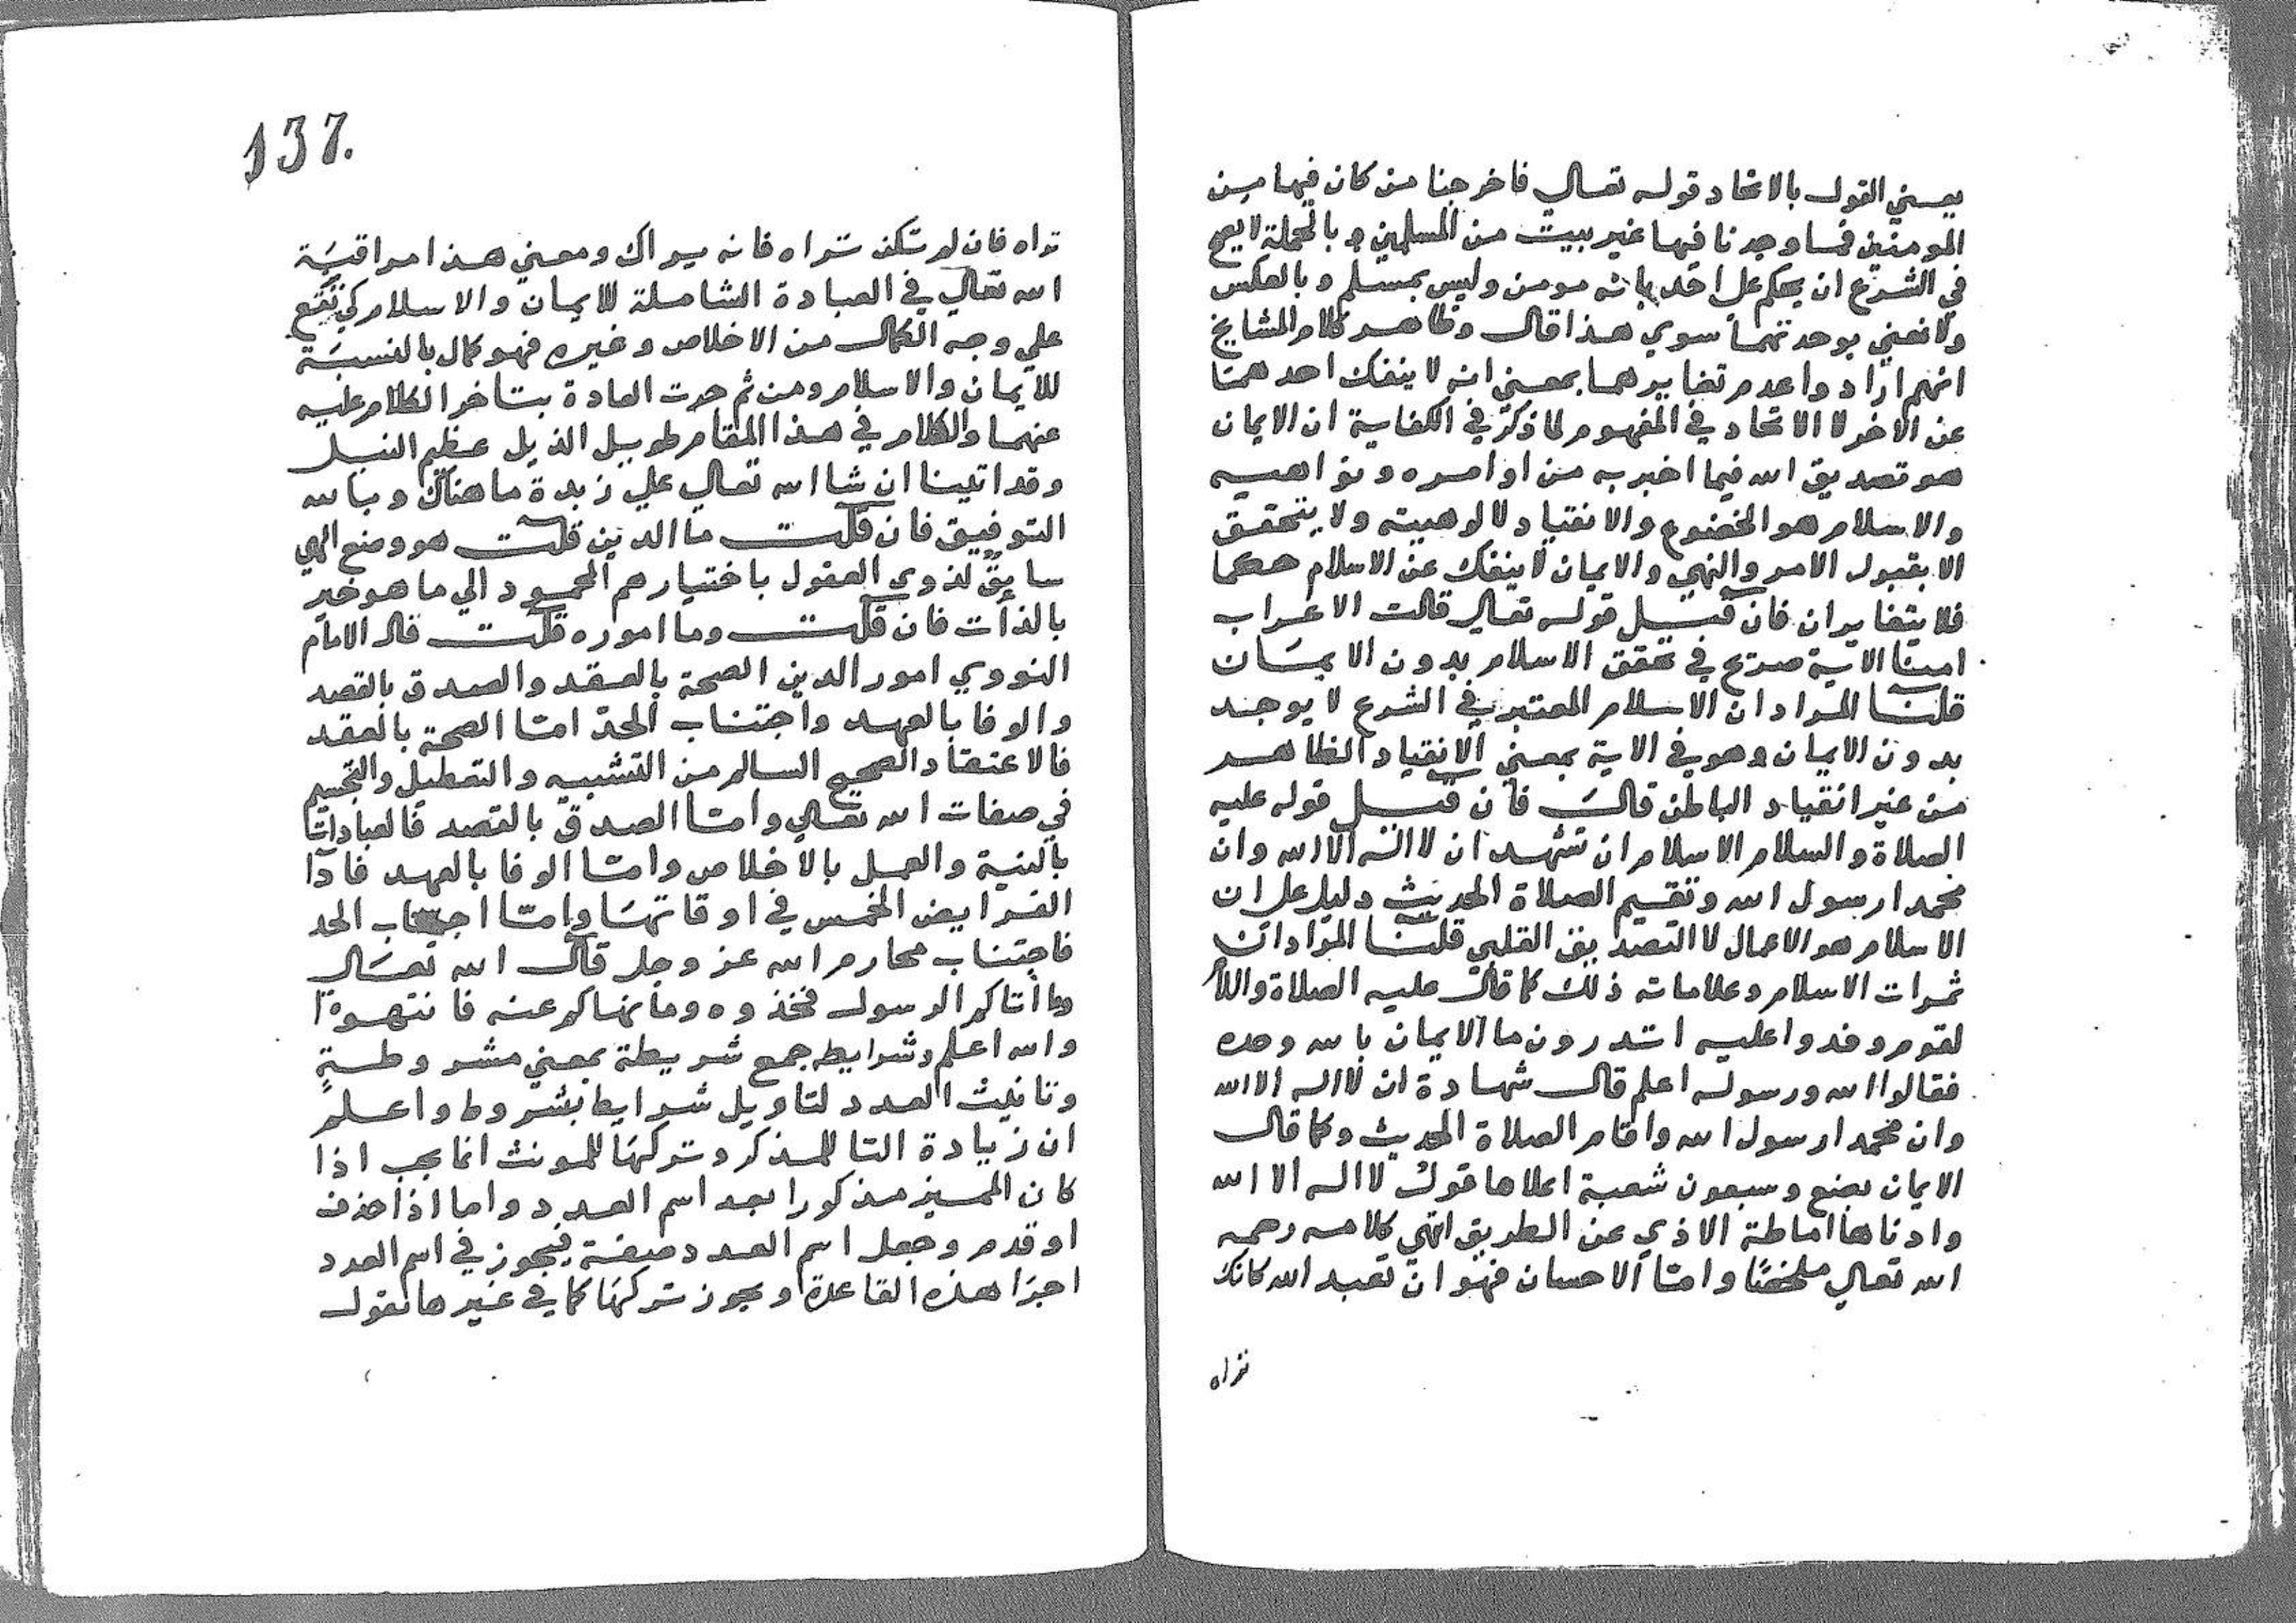 يعني القول بالاتحاد قوله تعالي فاخرجنا من كان فيها من
المومنين فما وجدنا فيها غير بيت من المسلمين وبالجملة لا يصح
في الشرع ان يحكم علي احد بانه مومن وليس بمسلم وبالعكس
ولا نعني بوحدتهما سوي هذا قال وظاهر كلام المشايخ
انهم ارادوا عدم تغايرهما بمعني انه لا ينفك احدهما
عن الاخر لا الاتحاد في المفهوم لما ذكر في الكفاية ان الايمان
هو تصديق الله فيما اخبر به من اوامره ونواهيه
والاسلام هو الخضوع والانقياد لالوهيته ولا يتحقق
الا بقبول الامر والنهي والايمان لا ينفك عن الاسلام حكما
فلا يتغايران فان قيل قوله تعالي قالت الاعراب
امنا الاية صريح في تحقق الاسلام بدون الايمان
قلنا المراد ان الاسلام المعتبر في الشرع لا يوجد
بدون الايمان وهو في الاية بمعني الانقياد الظاهر
من غير انقياد الباطن قال فان قيل قوله عليه
الصلاة والسلام الاسلام ان تشهد ان لا اله الا الله وان
محمدا رسول الله وتقيم الصلاة الحديث دليل علي ان
الاسلام هو الاعمال لا التصديق القلبي قلنا المراد ان
ثمرات الاسلام وعلاماته ذلك كما قال عليه الصلاة واللام
لقوم وفدوا عليه اتدرون ما الايمان بالله وحده
فقالوا الله ورسوله اعلم قال شهادة ان لا اله الا الله
وان محمدا رسول الله واقام الصلاة الحديث وكما قال
الايمان بضع وسبعون شعبة اعلاها قول لا اله الا الله
وادناها اماطة الاذي عن الطريق انتهي كلامه رحمه
الله تعالي ملخصًا وامّا الاحسان فهو ان تعبد الله كانك
تراه
137.
تراه فان لم تكن تراه فانه يراك ومعني هذا مراقبة
الله تعالي في العبادة الشاملة للايمان والاسلام كي تقع
علي وجه الكمال من الاخلاص وغيره فهو كمال بالنسبة
للايمان والاسلام ومن ثم جرت العادة بتاخر الكلام عليه
عنهما والكلام في هذا المقام طويل الذيل عظيم النيل
وقد اتينا ان شا الله تعالي علي زبدة ما هناك وبالله
التوفيق فان قلت ما الدين قلت هو وضع الهي
سايق لذوي العقول باختيارهم المحمود الي ما هو خير
بالذات فان قلت وما اموره قلت قال الامام
النووي امور الدين الصحة بالعقد والصدق بالقصد
والوفا بالعهد واجتناب الحد امّا الصحة بالعقد
فالاعتقاد الصحيح السالم من التشبيه والتعطيل والتجسيم
في صفات الله تعالي وامّا الصدق بالقصد فالعبادات
بالنية والعمل بالاخلاص وامّا الوفا بالعهد فادا
الفرايض الخمس في اوقاتها وامّا اجتناب الحد
فاجتناب محارم الله عز وجل قال الله تعالي
وما اتاكم الرسول فخذوه وما نهاكم عنه فانتهوا
والله اعلم وشرايط جمع شريطة بمعني مشروطة
وتانيث العدد لتاويل شرايط بشروط واعلم
ان زيادة التا للمذكر وتركها للمونث انما يجب اذا
كان المميز مذكورا بعد اسم العدد واما اذا حذف
او قدم وجعل اسم العدد صفة فيجوز في اسم العدد
اجرا هذه القاعدة ويجوز تركها كما في غيرها تقول